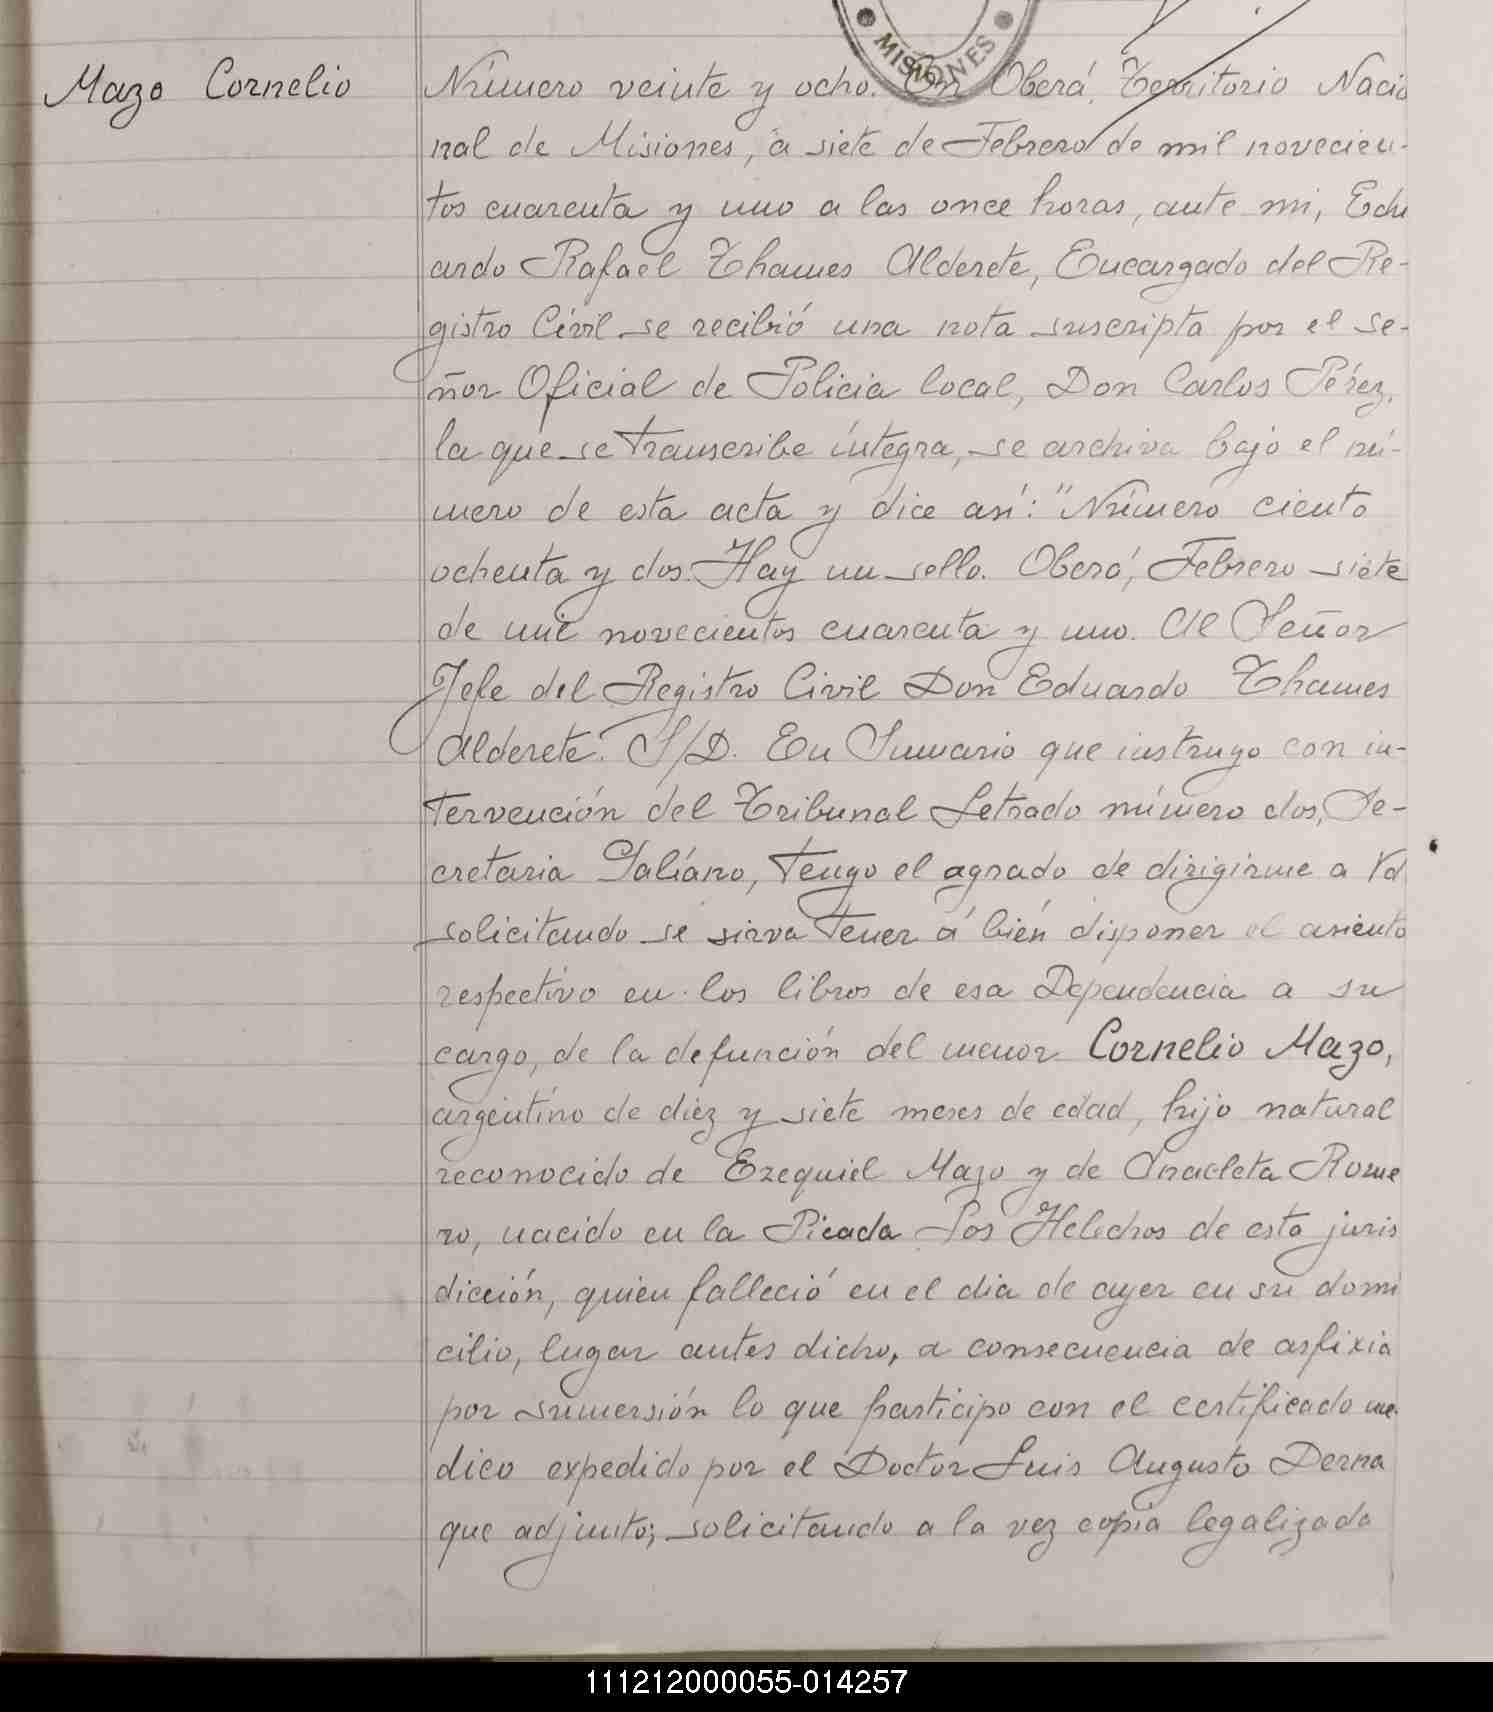 MISIONES
Mazo Cornelio
Número veinte y ocho. En Oberá, Territorio Nacio
nal de Misiones, a siete de Febrero de mil novecien-
tos cuarenta y uno a las once horas, ante mi, Edu
ardo Rafael Thames Alderete, Encargado del Re-
gistro Civil se recibió una nota suscripta por el se-
ñor Oficial de Policia local, Don Carlos Pérez,
la que se transcribe íntegra, se archiva bajo el nú-
mero de esta acta y dice así: "Número ciento
ochenta y dos. Hay un sello. Oberá, Febrero siete
de mil novecientos cuarenta y uno. Al Señor
Jefe del Registro Civil Don Eduardo Thames
Alderete. S/D. En Sumario que instruyo con in-
tervención del Tribunal Letrado número dos, Se-
cretaria Galiano, tengo el agrado de dirigirme a Vd
solicitando se sirva tener á bién disponer el asiento
respectivo en los libros de esa Dependencia a su
cargo, de la defunción del menor Cornelio Mazo,
argentino de diez y siete meses de edad, hijo natural
reconocido de Ezequiel Mazo y de Anacleta Rome
ro, nacido en la Picada Los Helechos de esta juris
dicción, quien falleció en el dia de ayer en su domi
cilio, lugar antes dicho, a consecuencia de asfixia
por sumersión lo que participo con el certificado me-
dico expedido por el Doctor Luis Augusto Derna
que adjunto; solicitando a la vez copia legalizada
111212000055-014257